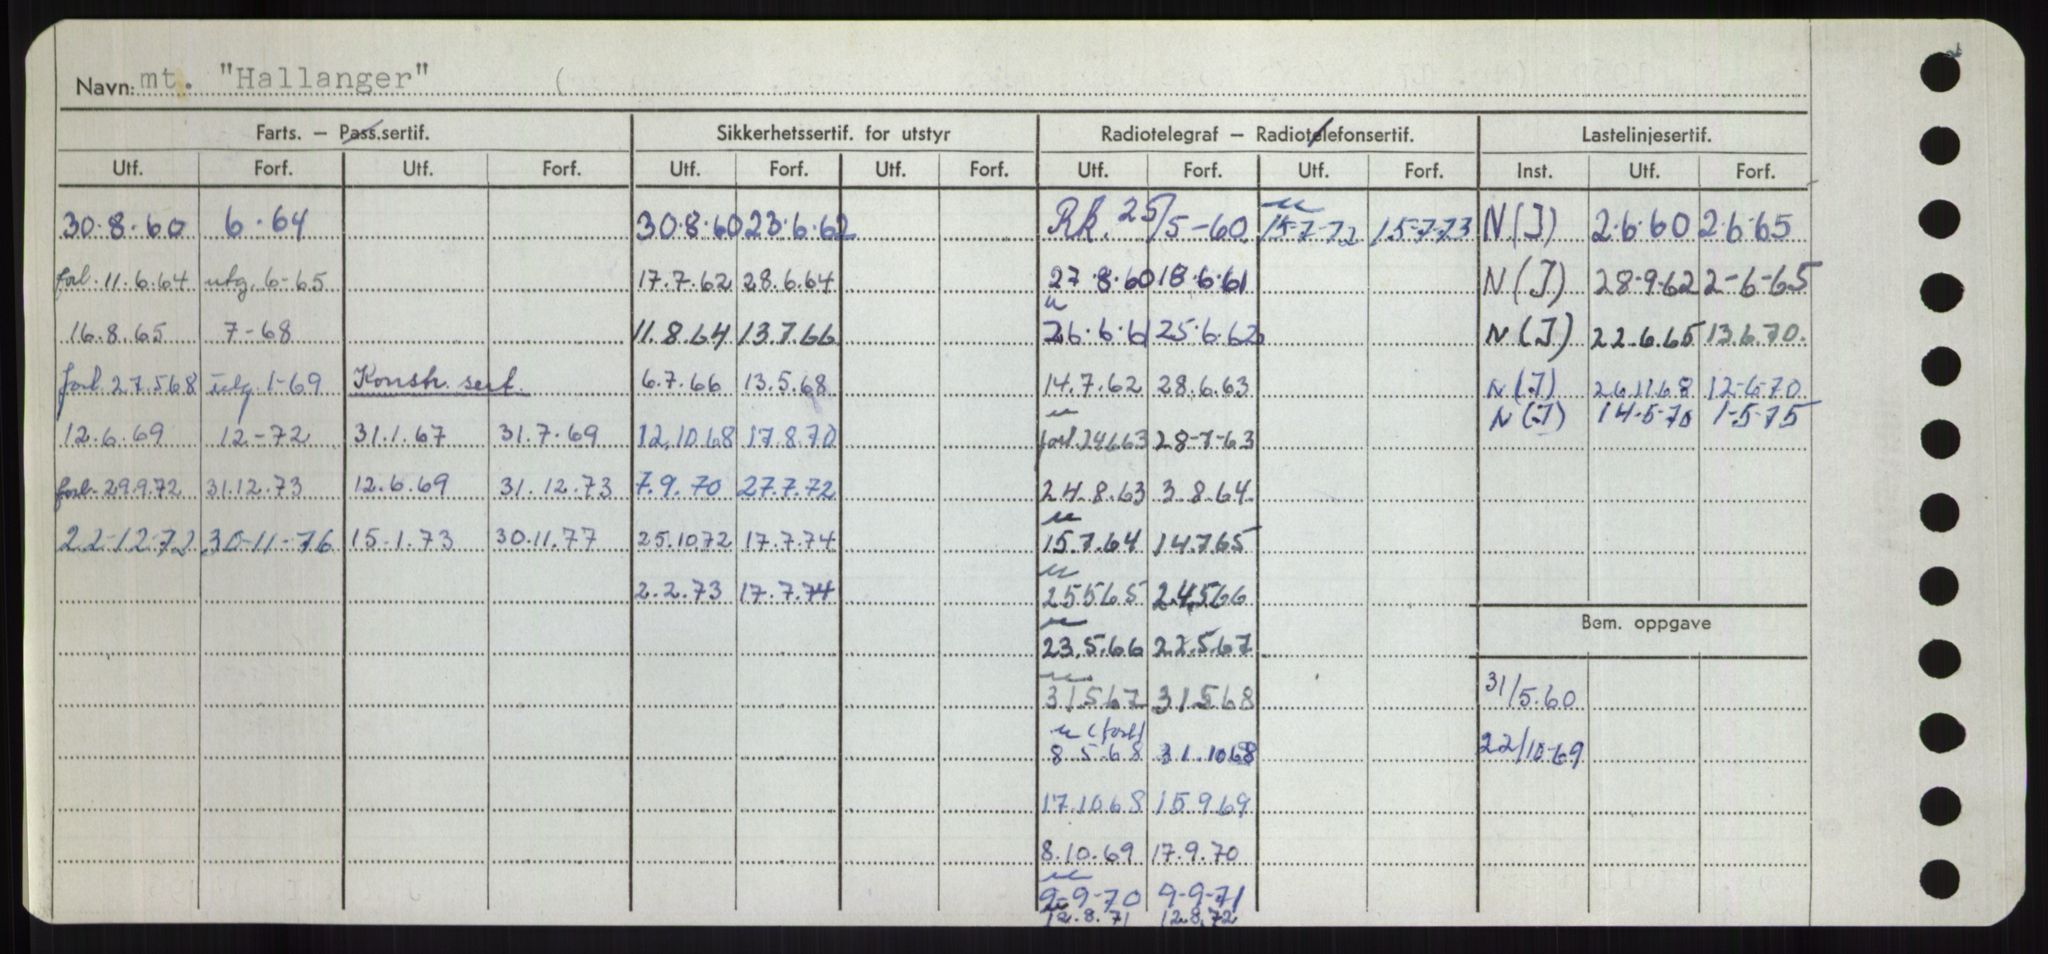 Navn: mt. "Hallanger" (
Farts. — Pass.sertif. Sikkerhetssertif. for utstyr Radiotelegraf — Radiotelefonsertif. Lastelinjesertif.
Utf. Forf. Utf. Forf. Utf. Forf. Utf. Forf. Utf. Forf. Utf. Forf. Inst. Utf. Forf.
30.8.60 6.64 30.8.60 23.6.62 RK. 25/5-60 15-7-72 15-7-73 N(I) 2.6.60 2.6.65
forl. 11.6.64 utg. 6-65 17.7.62 28.6.64 27.8.60 18.6.61 N(I) 28.9.62 2-6-65
16.8.65 7-68 11.8.64 13.7.66 26.6.61 25.6.62 N(I) 22.6.65 13.6.70.
forl. 27.5.68 utg. 1-69 Konstr. sert. 6.7.66 13.5.68 14.7.62 28.6.63 N(I) 26.11.68 12-6-70
N(I) 14-5-70 1-5-75
12.6.69 12-72 31.1.67 31.7.69 12.10.68 17.8.70 forl. 24.6.63 28-7-63
forl. 29.9.72 31.12.73 12.6.69 31.12.73 7.9.70 27.7.72 24.8.63 3.8.64.
22-12-72 30-11-76 15.1.73 30.11.77 25.10.72 17.7.74 15.7.64 14.7.65
2.2.73 17.7.74 25.5.65 24.5.66
Bem. oppgave
23.5.66 22.5.67
31.5.67 31.5.68 31/5.60
(forl)
8.5.68 31.10.68 22/10-69
17.10.68 15.9.69
8.10.69 17.9.70
9-9-70 9-9-71
12.8.71 12.8.72